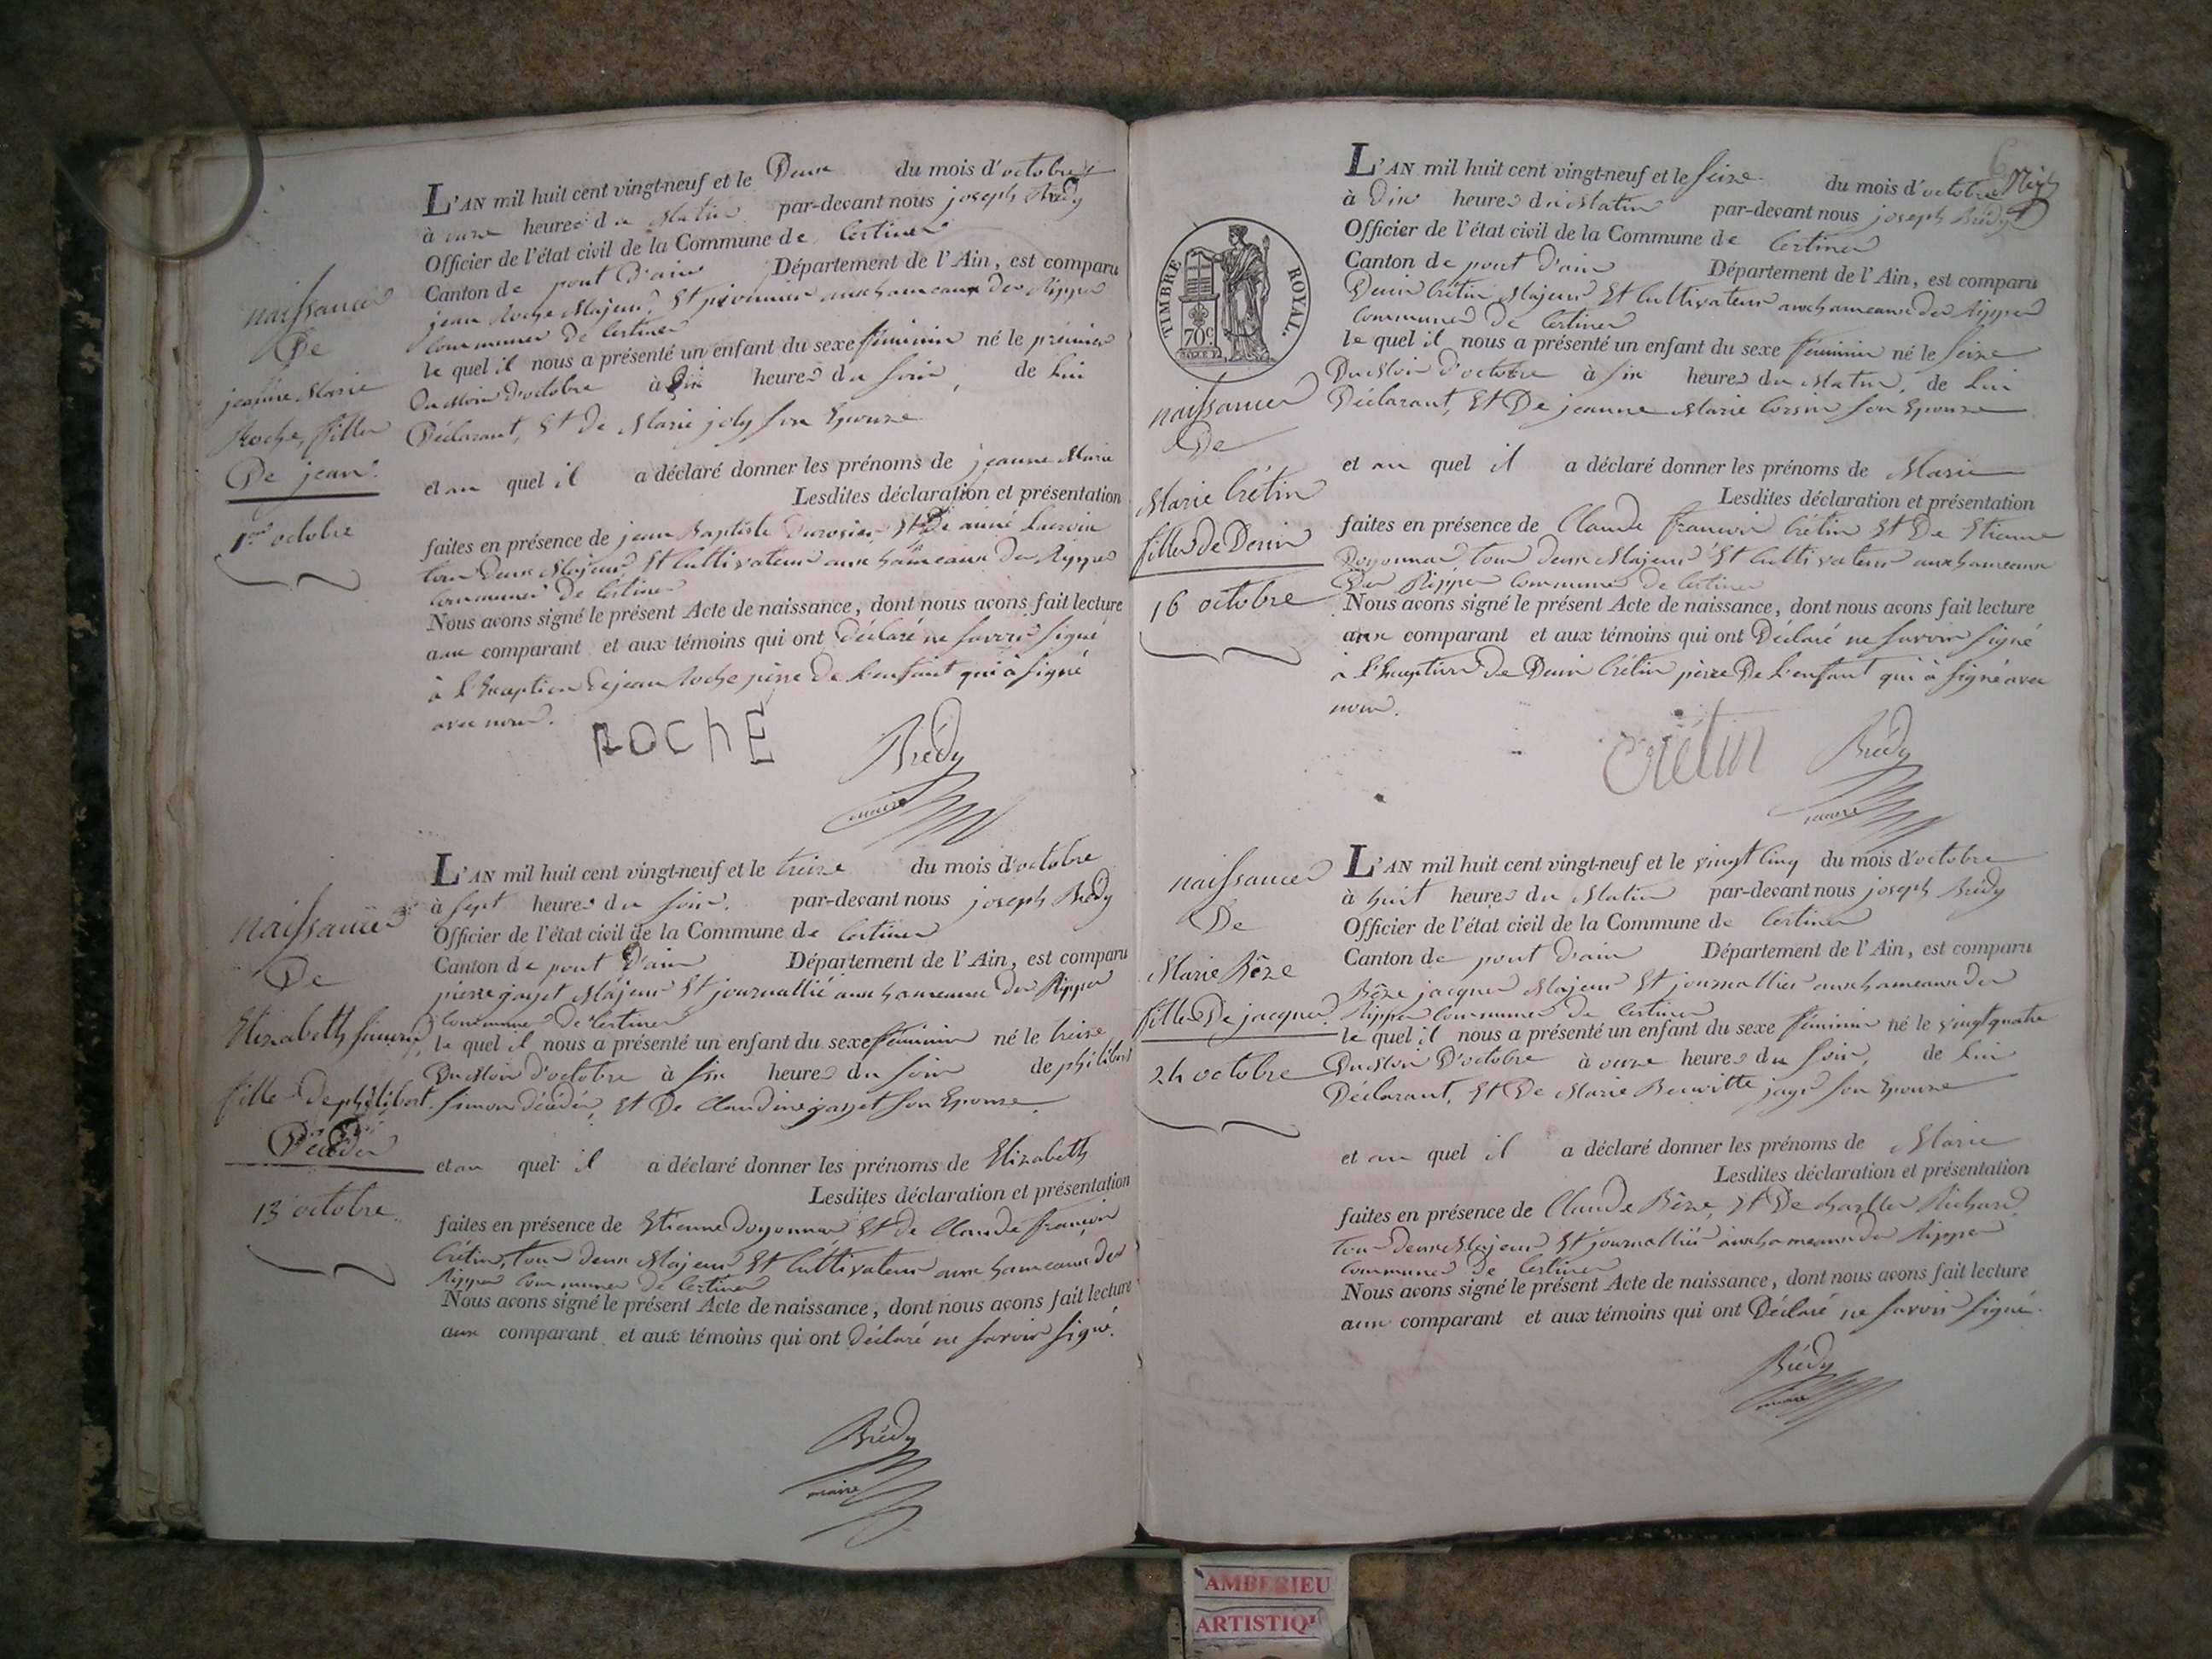 naissance
De
jeanne Marie
Roche, fille
De jean.
1er octobre
L'AN mil huit cent vingt-neuf et le Deux du mois d'octobre
à onze heures du Matin par-devant nous joseph Brédy
Officier de l'état civil de la Commune de Certines
Canton de pont D'ain Département de l'Ain, est comparu
jean Roche Majeur, Et aux hameaux des Rippes
commune de Certines
le quel il nous a présenté un enfant du sexe féminin né le premier
Du Mois d'octobre à Six heures du soir, de Lui
Déclarant, Et de Marie joly son Epouse
et au quel il a déclaré donner les prénoms de jeanne Marie
Lesdites déclaration et présentation
faites en présence de jean Baptiste Et De aimé Lacroix
tous Deux Majeurs Et Cultivateurs aux hameaux des Rippes
commune de Certines
Nous avons signé le présent Acte de naissance, dont nous avons fait lecture
aux comparant et aux témoins qui ont Déclaré ne savoir signé
à L'Exception de jean Roche père de L'enfant qui à signé
avec nous.
ROChE
Brédy
maire
naissance
De
Elizabeth Simon,
fille De philibert
Décédé
13 octobre
L'AN mil huit cent vingt-neuf et le treize du mois d'octobre
à sept heures du soir. par-devant nous joseph Brédy
Officier de l'état civil de la Commune de Certines
Canton de pont D'ain Département de l'Ain, est comparu
pierre gayet Majeur Et journallié aux hameaux des Rippes
commune de Certines
le quel il nous a présenté un enfant du sexe féminin né le treize
Du Mois d'octobre à six heures du soir de philibert
Simon décédé, Et De Claudine gayet son Epouse.
et au quel il a déclaré donner les prénoms de Elizabeth
Lesdites déclaration et présentation
faites en présence de Etienne Doyonnas Et de Claude françois
Crétin, tous deux Majeurs Et Cultivateurs aux hameaux des
Rippes commune de Certines
Nous avons signé le présent Acte de naissance, dont nous avons fait lecture
aux comparant et aux témoins qui ont déclaré ne savoir signé.
Brédy
maire
TIMBRE ROYAL.
70c
naissance
De
Marie Crétin
fille de Denis
16 octobre
L'AN mil huit cent vingt-neuf et le seize du mois d'octobre
à Dix heures du Matin par-devant nous joseph Brédy
Officier de l'état civil de la Commune de Certines
Canton de pont d'ain Département de l'Ain, est comparu
Denis Crétin Majeur Et Cultivateur aux hameaux des Rippes
Commune de Certines
le quel il nous a présenté un enfant du sexe féminin né le seize
Du Mois d'octobre à six heures du Matin, de Lui
Déclarant, Et De jeanne Marie Corsin son Epouse
et au quel il a déclaré donner les prénoms de Marie
Lesdites déclaration et présentation
faites en présence de Claude françois Crétin Et De Etienne
Doyonnas, tous deux Majeurs Et Cultivateurs aux hameaux
Des Rippes Commune de Certines
Nous avons signé le présent Acte de naissance, dont nous avons fait lecture
aux comparant et aux témoins qui ont Déclaré ne savoir signé
à L'Exception de Denis Crétin père De L'enfant qui à signé avec
nous.
Crétin
Brédy
maire
naissance
De
Marie Bêze
fille De jacques
24 octobre
L'AN mil huit cent vingt-neuf et le vingt Cinq du mois d'octobre
à huit heures du Matin par-devant nous joseph Brédy
Officier de l'état civil de la Commune de Certines
Canton de pont d'ain Département de l'Ain, est comparu
Bêze jacques Majeur Et journallier aux hameaux des
Rippes Commune de Certines
le quel il nous a présenté un enfant du sexe féminin né le vingt quatre
Du Mois D'octobre à onze heures du soir, de Lui
Déclarant, Et De Marie son Epouse
et au quel il a déclaré donner les prénoms de Marie
Lesdites déclaration et présentation
faites en présence de Claude Bêze, Et De Charlles Richard
tous deux Majeurs Et journalliés aux hameaux des Rippes
Commune de Certines
Nous avons signé le présent Acte de naissance, dont nous avons fait lecture
aux comparant et aux témoins qui ont Déclaré ne savoir signé.
Brédy
maire
AMBERIEU
ARTISTIQ